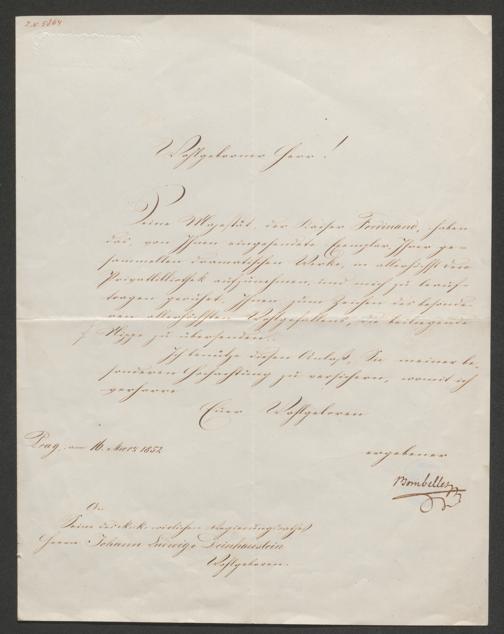 I.N. 5864
Wohlgeborner Herr!
Seine Majestät, der Kaiser Ferdinand, haben
das, von Ihnen eingesendete Exemplar Ihrer ge-
sammelten dramatischen Werke, in allerhöchst dero
Privatbibliothek aufzunehmen, und mich zu beauf-
tragen geruhet, Ihnen zum Zeichen des besonde-
ren allerhöchsten Wohlgefallens, die beiliegende
zu übersenden.
Ich benütze diesen Anlaß, Sie meiner be-
sonderen Hochachtung zu versichern, womit ich
verharre
Euer Wohlgeboren
Prag, am 16. März 1852
ergebener
Bombelles
An
Seine des k. k. wirklichen Regierungsrathes
Herrn Johann Ludwig Deinhardstein
Wohlgeboren.